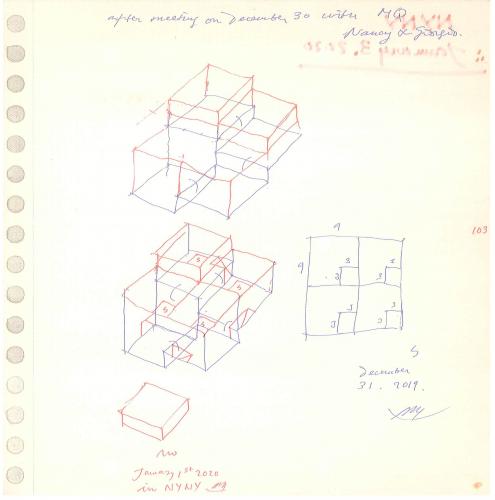 after meeting on December 30 with MQ
Nancy & Giorgio.
NYNY
January 3. 2020
103
9
9
3
3
3
3
3
3
3
3
S
S
S
S
December
31. 2019.
NO
January 1st 2020
in NYNY